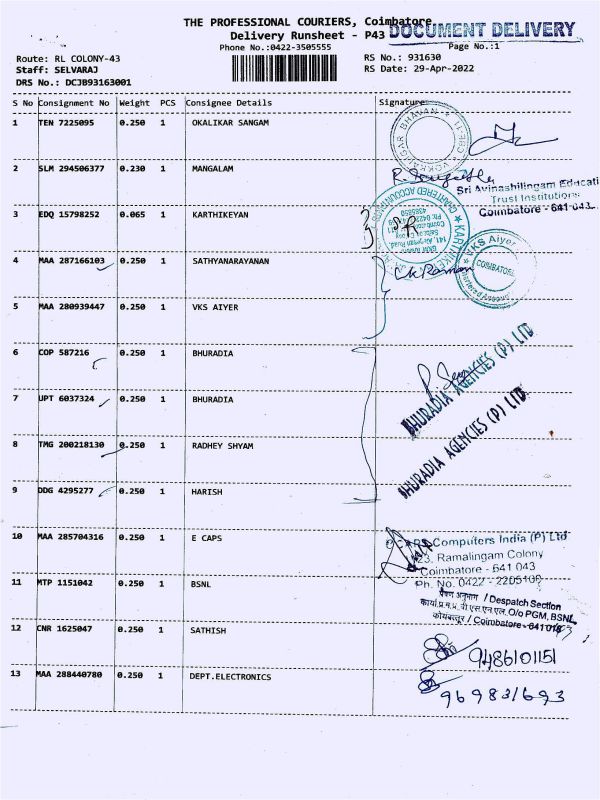 THE PROFESSIONAL COURIERS, Coimbatore
DOCUMENT DELIVERY
Delivery Runsheet - P43
Phone No.:0422-3505555
Page No.:1
Route: RL COLONY-43
RS No.: 931630
Staff: SELVARAJ
RS Date: 29-Apr-2022
DRS No.: DCJB93163001
S No Consignment No Weight PCS Consignee Details Signature
1 TEN 7225095 0.250 1 OKALIKAR SANGAM
2 SLM 294506377 0.230 1 MANGALAM
Sri Avinashilingam Educati
Trust Institutions
Coimbatore - 641 043.
3 EDQ 15798252 0.065 1 KARTHIKEYAN
CHARTERED ACCOUNTANTS
KARTHIKE
4 MAA 287166103 0.250 1 SATHYANARAYANAN
VKS Aiyer
COIMBATORE
5 MAA 280939447 0.250 1 VKS AIYER
6 COP 587216 0.250 1 BHURADIA
BHURADIA AGENCIES (P) LTD
7 UPT 6037324 0.250 1 BHURADIA
BHURADIA AGENCIES (P) LTD.
8 TMG 200218130 0.250 1 RADHEY SHYAM
9 DDG 4295277 0.250 1 HARISH
10 MAA 285704316 0.250 1 E CAPS
Computers India (P) Ltd
23, Ramalingam Colony
Coimbatore - 641 043
Ph. No. 0422 - 2205100
11 MTP 1151042 0.250 1 BSNL
प्रेषण अनुभाग / Despatch Section
O/o PGM, BSNL
कोयंबत्तूर / Coimbatore - 641 043
12 CNR 1625047 0.250 1 SATHISH
9486101151
13 MAA 288440780 0.250 1 DEPT.ELECTRONICS
969831693